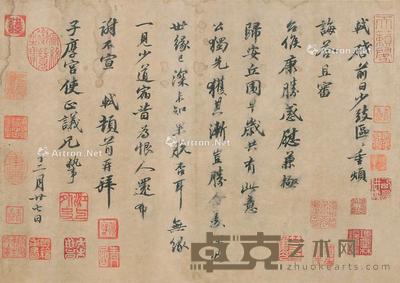 軾啓前日少致區々重煩
誨答且審
台候康勝感慰兼極
歸安丘園早歲共有此意
公獨先獲其漸豈勝企羨
世緣已深未知果脫否耳無緣
一見少道宿昔為恨人還布
謝不宣 軾頓首再拜
子厚宮使正議兄執事
十二月廿七日
Artron.Net
艺术网
auction.artron.net